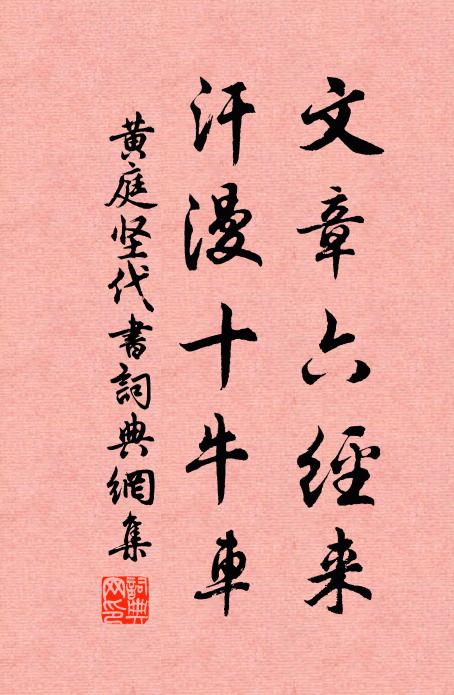 文章六經来
汗漫十牛車
黄庭坚代書詞典網集
詞典网印